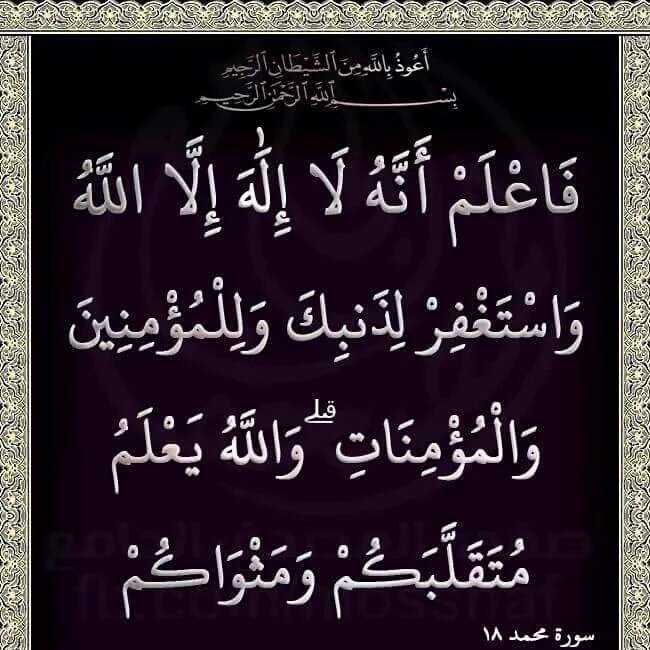 أَعُوذُ بِاللَّهِ مِنَ الشَّيْطَانِ الرَّجِيمِ
بِسْمِ اللَّهِ الرَّحْمَٰنِ الرَّحِيمِ
فَاعْلَمْ أَنَّهُ لَا إِلَٰهَ إِلَّا اللَّهُ
وَاسْتَغْفِرْ لِذَنبِكَ وَلِلْمُؤْمِنِينَ
وَالْمُؤْمِنَاتِ ۗ وَاللَّهُ يَعْلَمُ
مُتَقَلَّبَكُمْ وَمَثْوَاكُمْ
سورة محمد ١٨